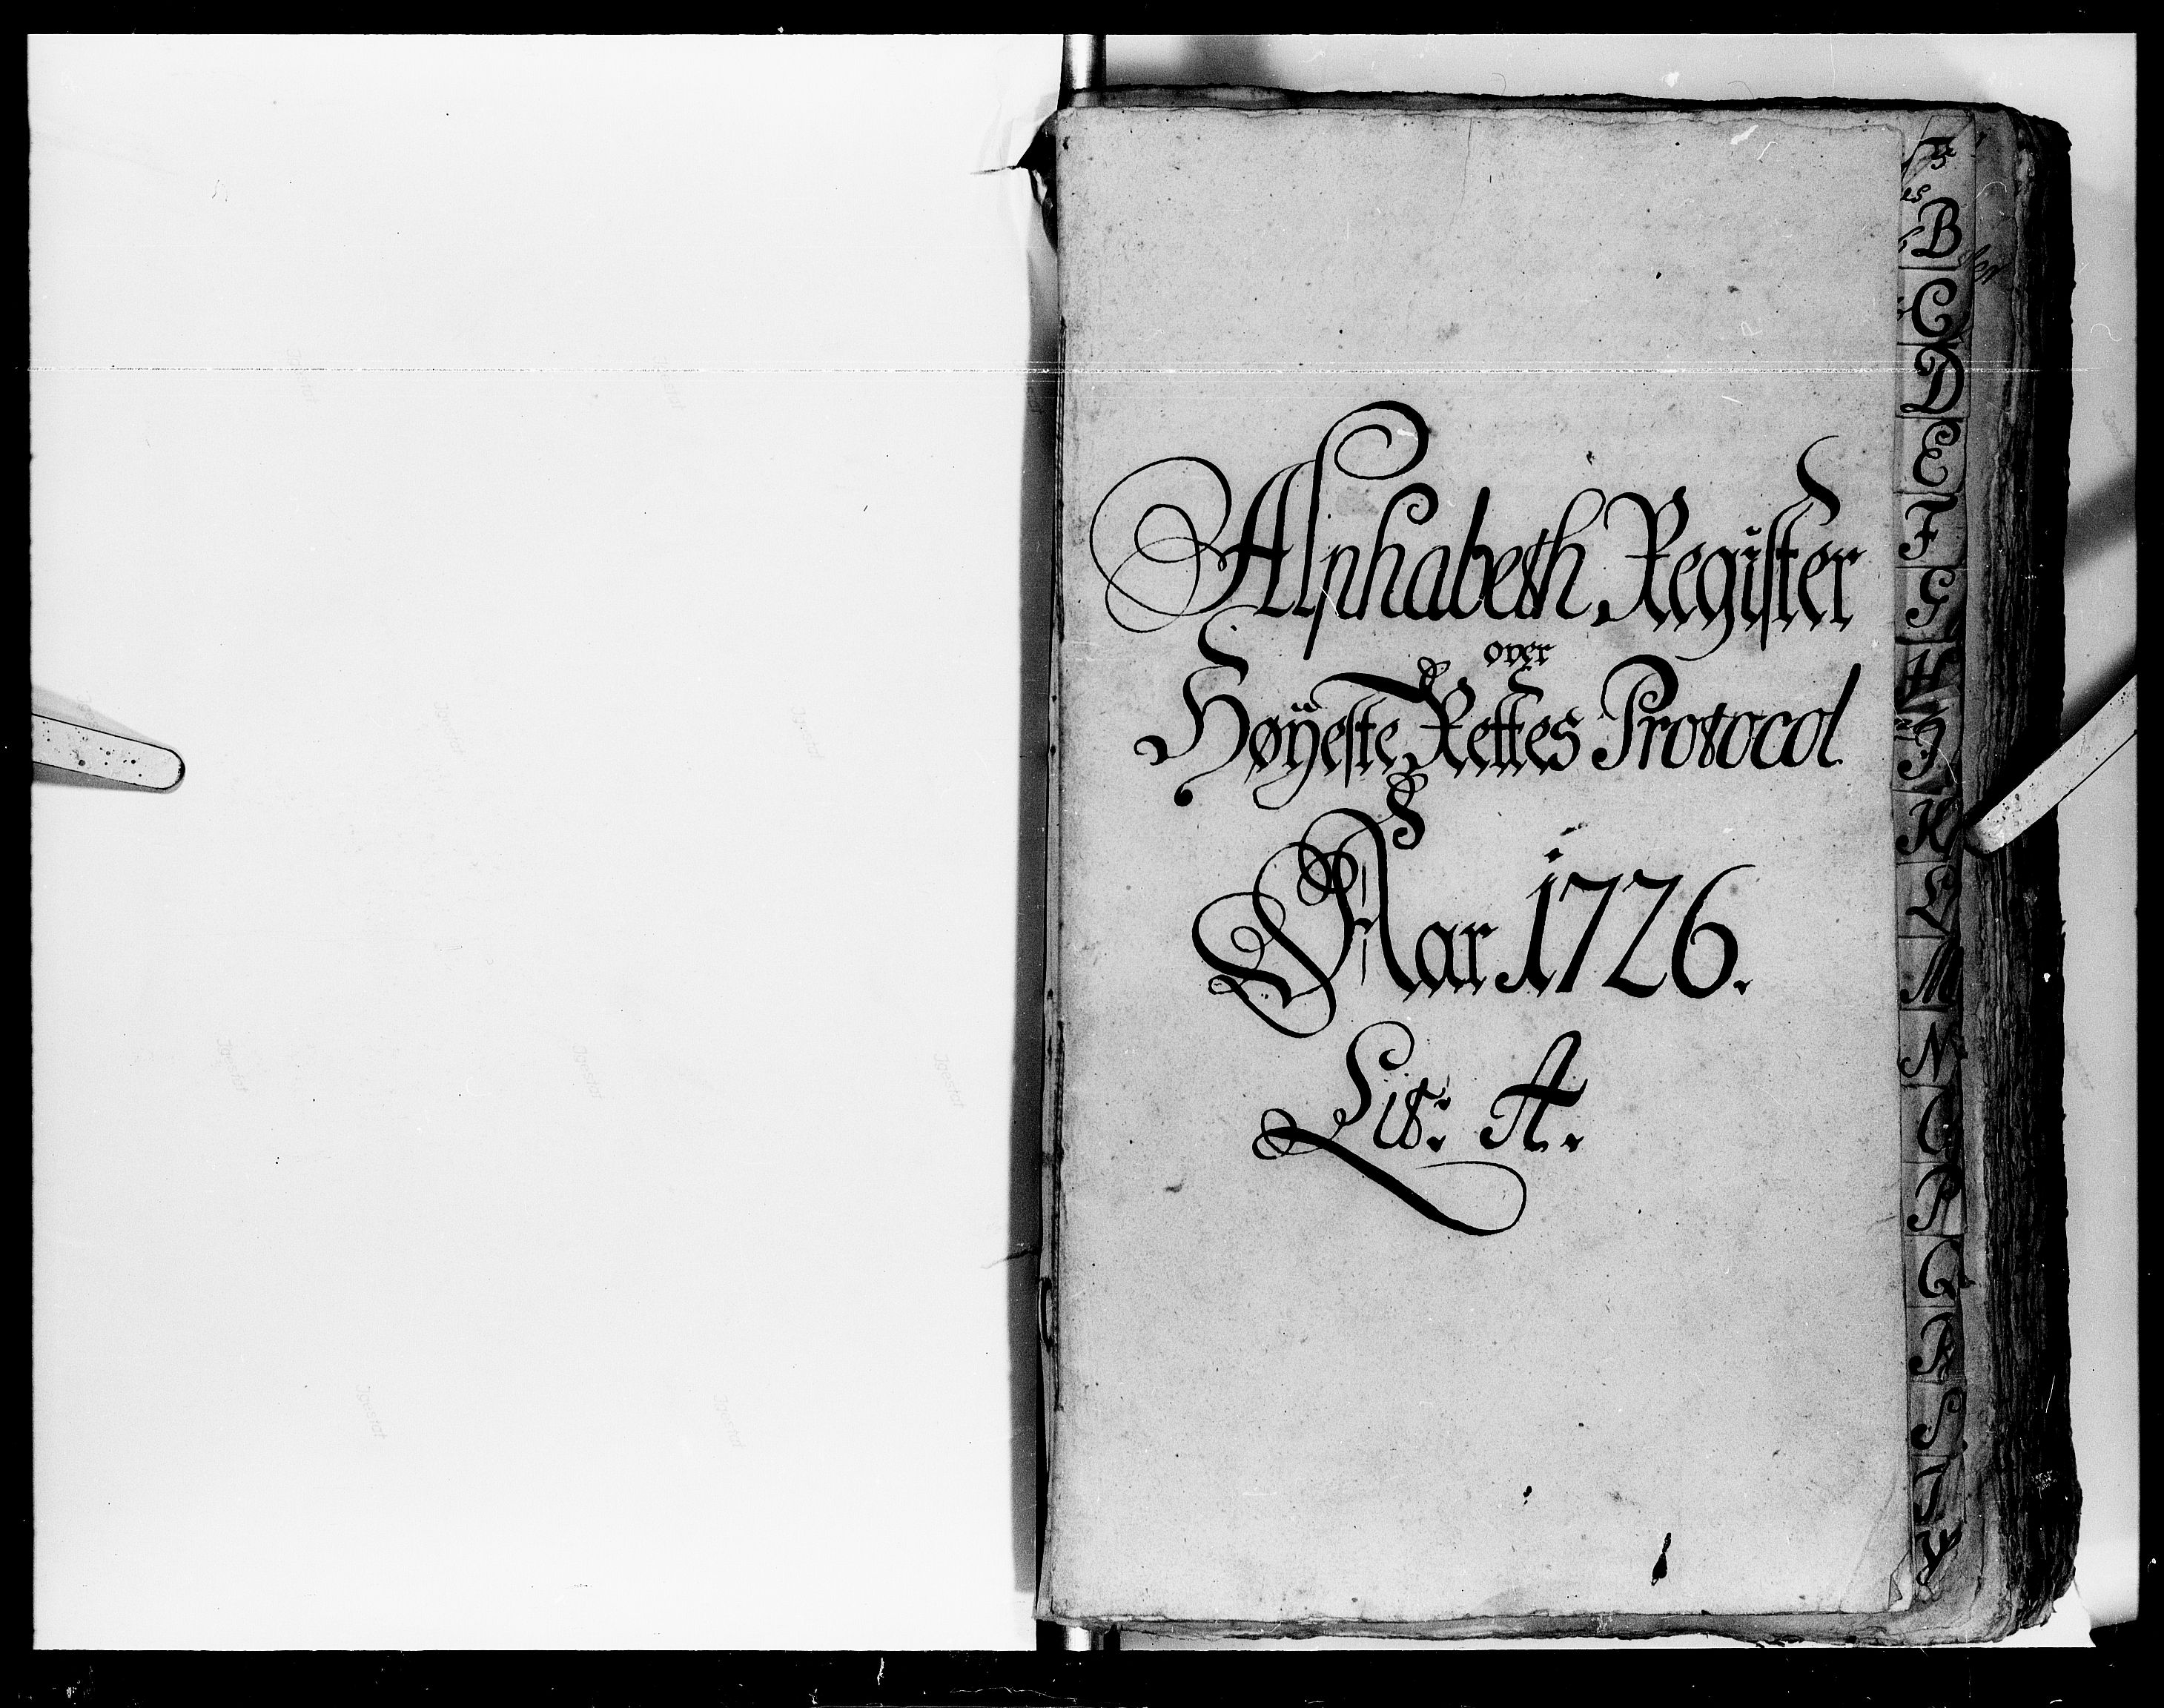 Alphabeth Register
over
Høÿeste Rettes Protocol
Aar 1726.
Lit: A.
B
C
D
E
F
G
H
I
K
L
M
N
O
P
Q
R
S
T